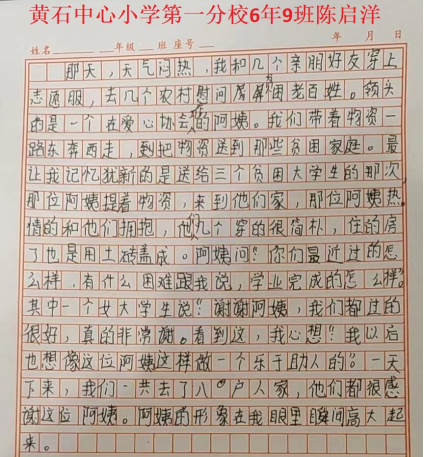 黄石中心小学第一分校6年9班陈启洋
姓名 年级 班 座号 年 月 日
那天，天气闷热，我和几个亲朋好友穿上
志愿服，去几个农村慰问房屏困老百姓。领头
的是一个在爱心协会的阿姨。我们带着物资一
路东奔西走，到把物资送到那些贫困家庭。最
让我记忆犹新的是送给三个贫困大学生的那次
那位阿姨提着物资，来到他们家，那位阿姨热
情的和他们拥抱，他们几个穿的很简朴，住的房
了也是用土砖盖成。阿姨问：“你们最近过的怎
么样，有什么困难跟我说，学业完成的怎么样”
其中一个女大学生说：“谢谢阿姨，我们都过的
很好，真的非常谢。看到这，我心想：“我以后
也想像这位阿姨这样做一个乐于助人的。”一天
下来，我们一共去了八户人家，他们都很感
谢这位阿姨。阿姨的形象在我眼里瞬间高大起
来。